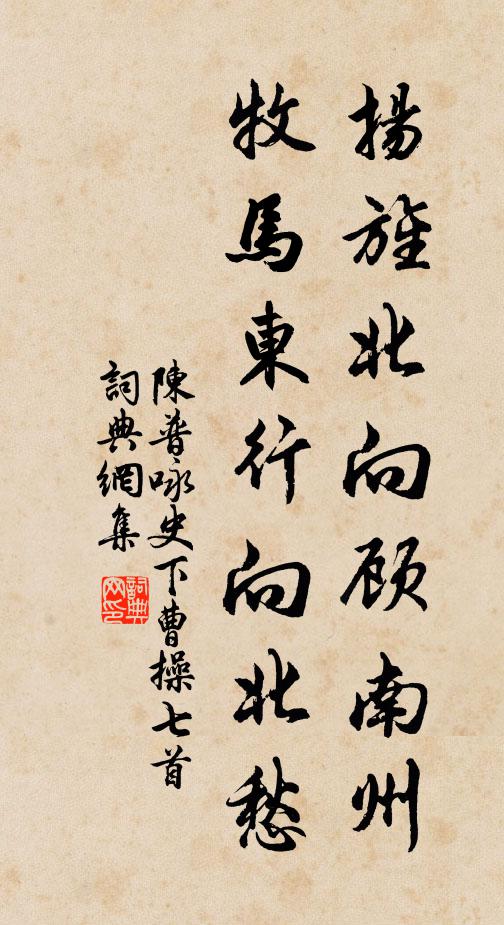 揚旌北向顧南州
牧馬東行向北愁
陳普咏史下曹操七首
詞典網集
詞典網印